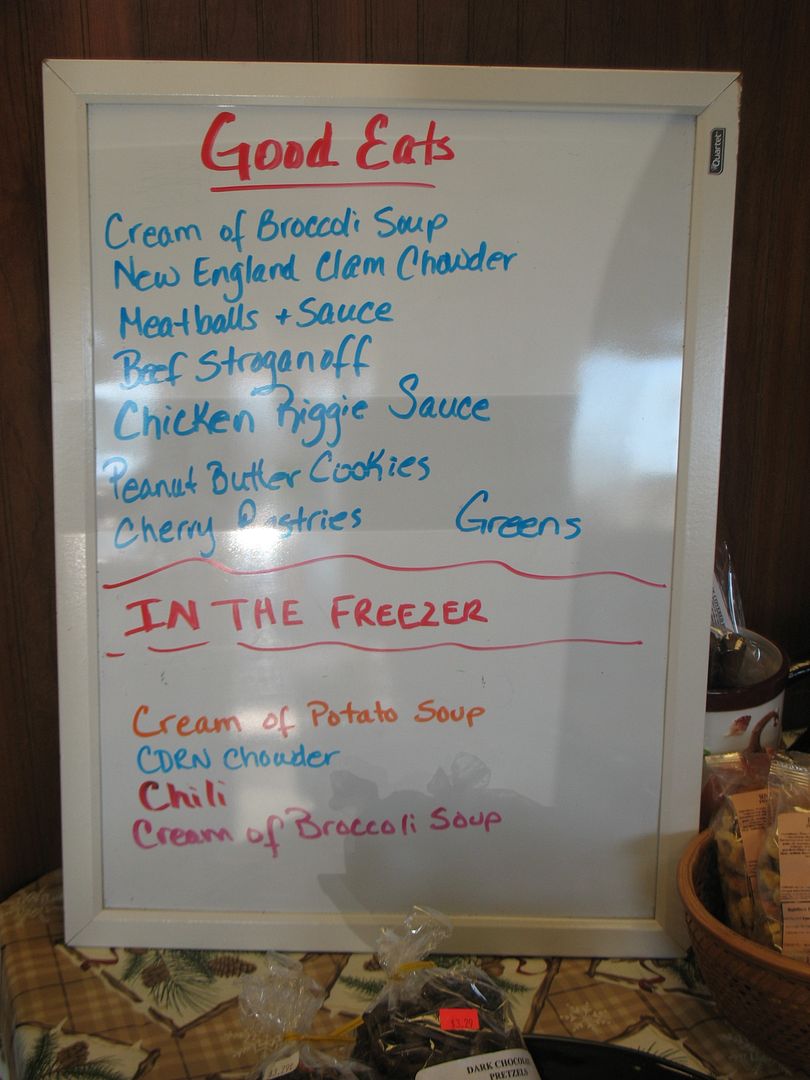 Good Eats
Quartet
Cream of Broccoli Soup
New England Clam Chowder
Meatballs + Sauce
Beef Stroganoff
Chicken Riggie Sauce
Peanut Butter Cookies
Cherry Pastries Greens
IN THE FREEZER
Cream of Potato Soup
CORN Chowder
Chili
Cream of Broccoli Soup
$3.29
DARK CHOCOLATE
PRETZELS